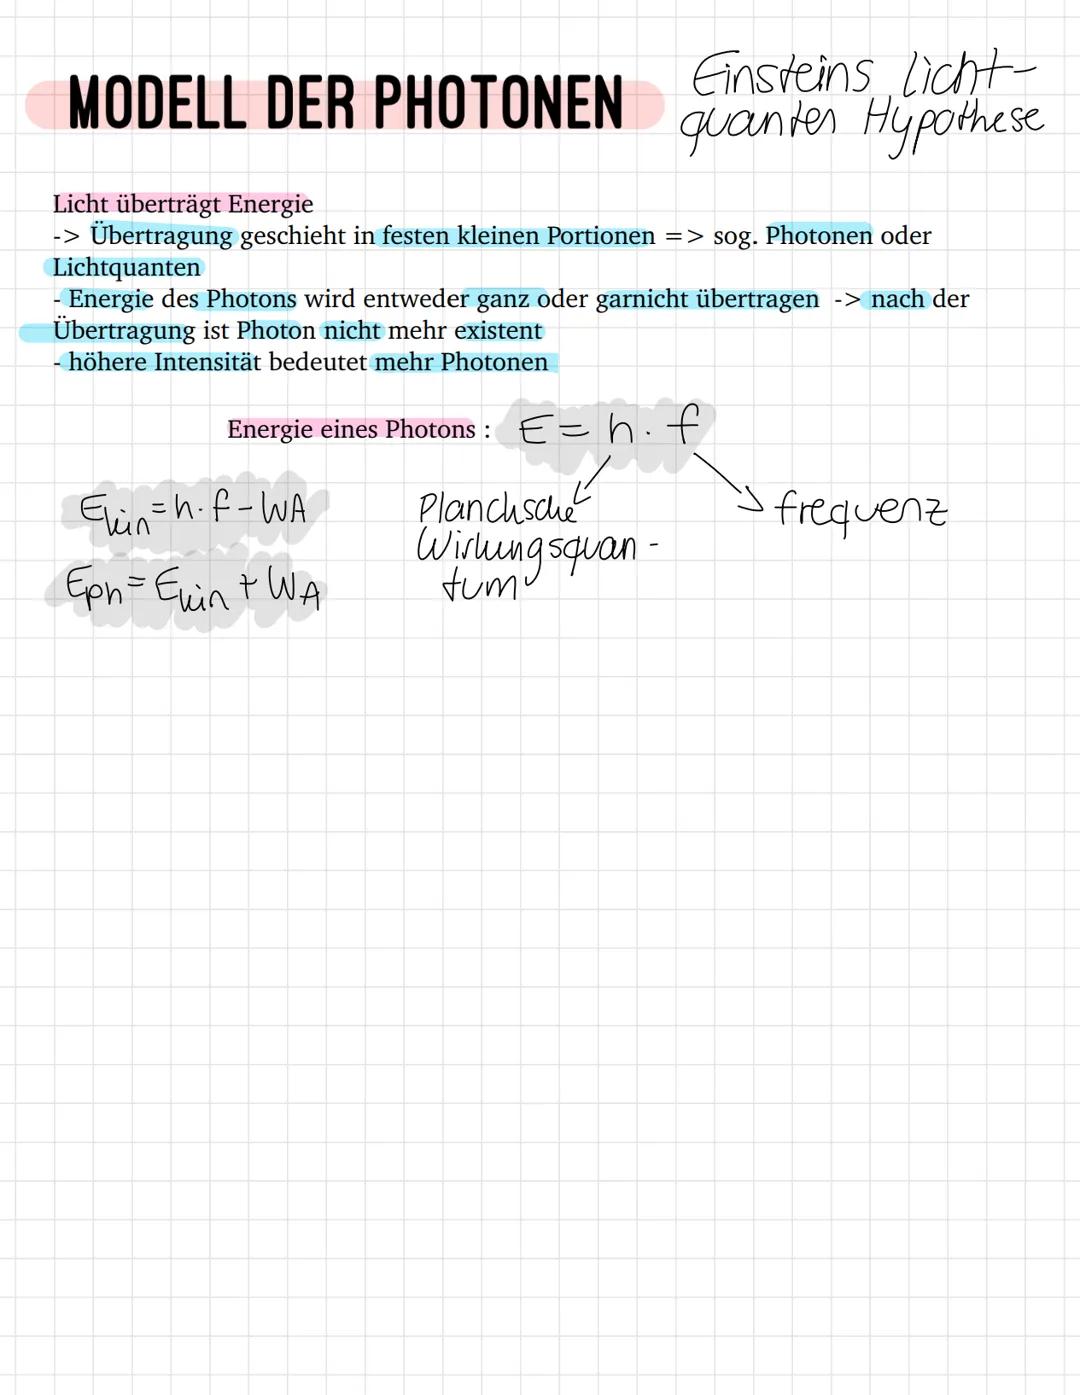 MODELL DER PHOTONEN
Einsteins Licht-
quanten Hypothese
Licht überträgt Energie
-> Übertragung geschieht in festen kleinen Portionen => sog. Photonen oder
Lichtquanten
- Energie des Photons wird entweder ganz oder garnicht übertragen -> nach der
Übertragung ist Photon nicht mehr existent
- höhere Intensität bedeutet mehr Photonen
Energie eines Photons : E = h · f
Ekin = h · f - WA
Eph = Ekin + WA
Plancksche
Wirkungsquan-
tum
frequenz